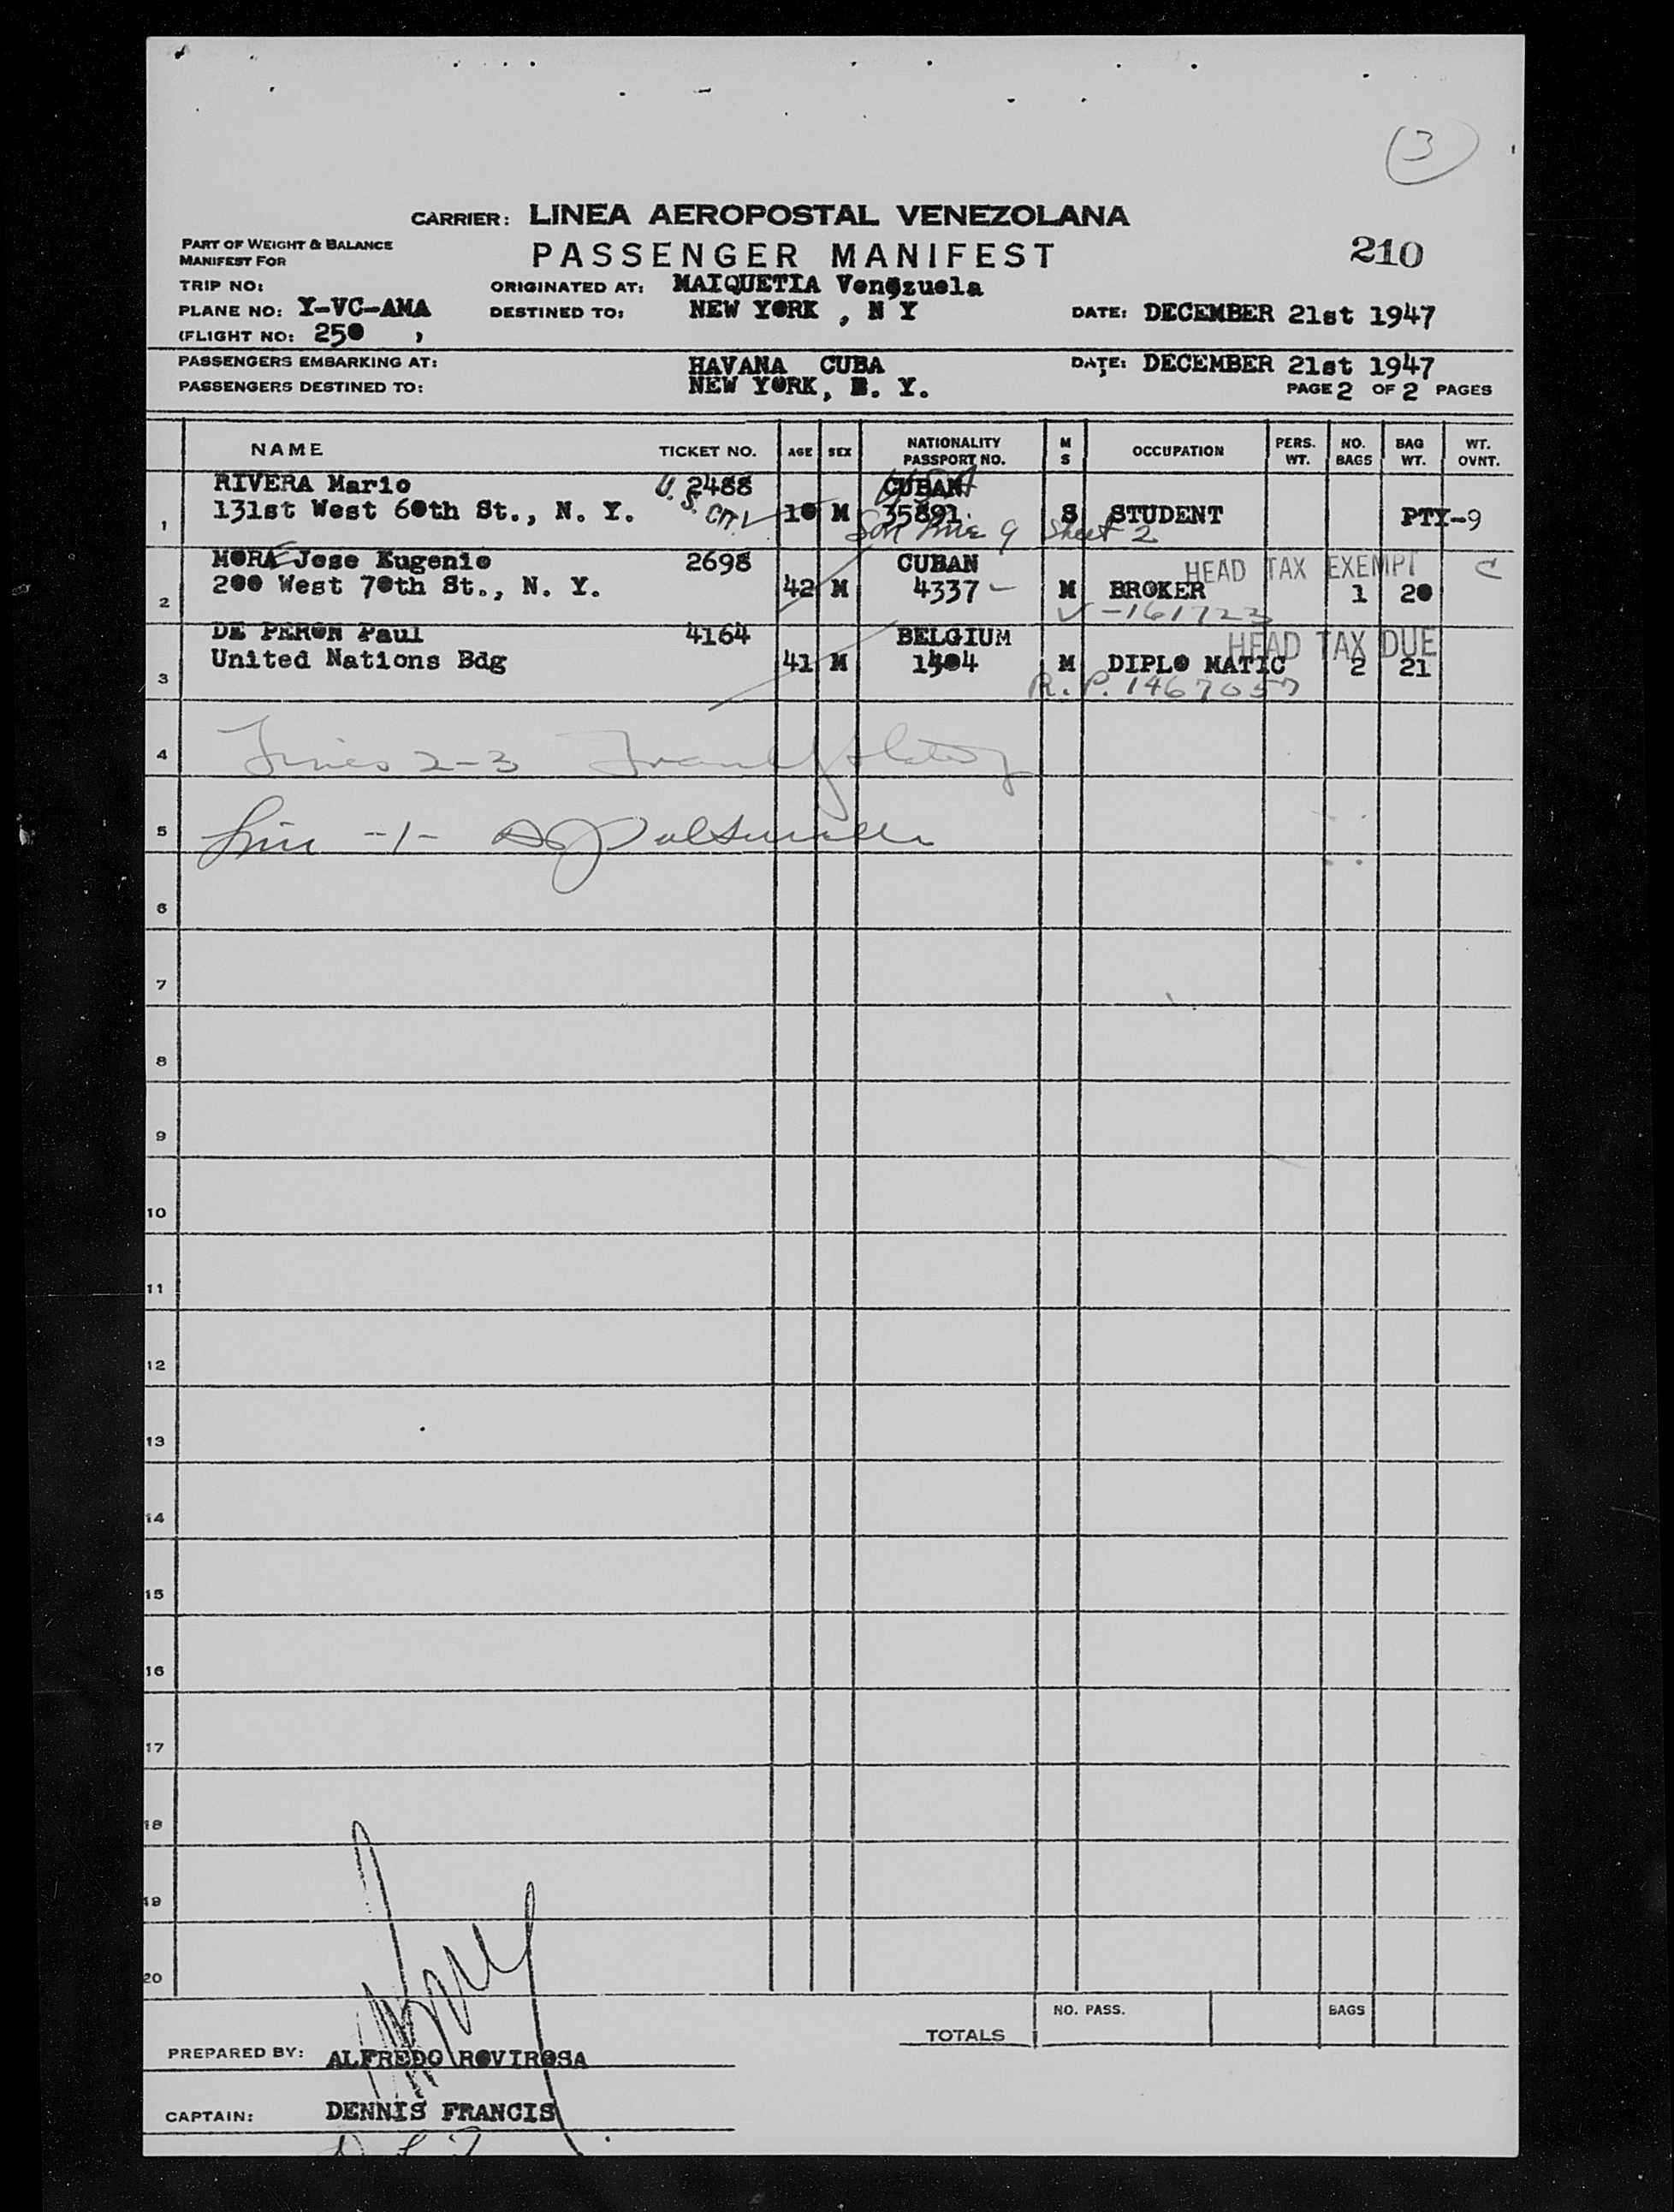 3
CARRIER: LINEA AEROPOSTAL VENEZOLANA
PART OF WEIGHT & BALANCE
MANIFEST FOR
PASSENGER MANIFEST
210
TRIP NO:
ORIGINATED AT: MAIQUETIA Venezuela
PLANE NO: Y-VC-AMA
DESTINED TO: NEW YORK , N Y
DATE: DECEMBER 21st 1947
(FLIGHT NO: 250 ,
PASSENGERS EMBARKING AT: HAVANA CUBA
DATE: DECEMBER 21st 1947
PASSENGERS DESTINED TO: NEW YORK, N. Y.
PAGE 2 OF 2 PAGES
NAME TICKET NO. AGE SEX NATIONALITY PASSPORT NO. M S OCCUPATION PERS. WT. NO. BAGS BAG WT. WT. OVNT.
RIVERA Mario U.S. 2488 CUBAN
1 131st West 60th St., N. Y. 10 M 35891 S STUDENT PTY-9
Son line 9 sheet 2
MORA Jose Eugenio 2698 CUBAN HEAD TAX EXEMPT C
2 200 West 70th St., N. Y. 42 M 4337 M BROKER 1 20
V-161723
DE PERON Paul 4164 BELGIUM HEAD TAX DUE
3 United Nations Bdg 41 M 1504 M DIPLO MATIC 2 21
R.P. 1467057
4 Lines 2-3
5 Line -1-
6
7
8
9
10
11
12
13
14
15
16
17
18
19
20
NO. PASS. BAGS
TOTALS
PREPARED BY: ALFREDO ROVIROSA
CAPTAIN: DENNIS FRANCIS